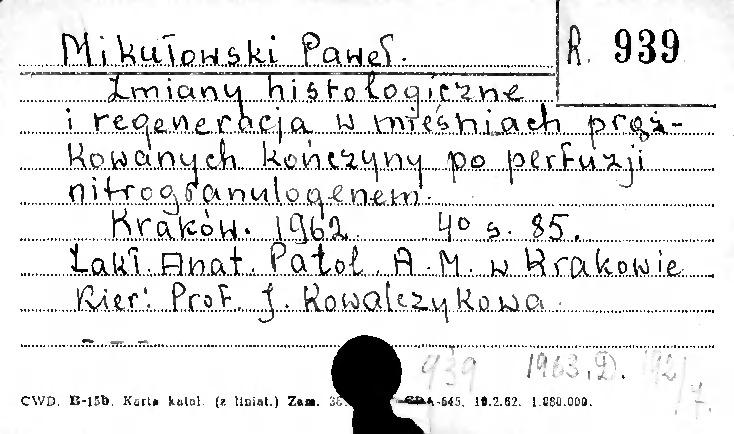 Mikułowski Paweł.
R. 939
Zmiany histologiczne
i regeneracja w mięśniach prąż-
kowanych kończyny po perfuzji
nitrogranulogenem.
Kraków. 1962. 4° s. 85.
Zakł. Anat. Patol. A. M. w Krakowie
Kier: Prof. J. Kowalczykowa.
- - -
939 1963. D. 192/7.
CWD. B-15b. Karta katal. (z liniat.) Zam. 36. -645. 10.2.62. 1.000.000.